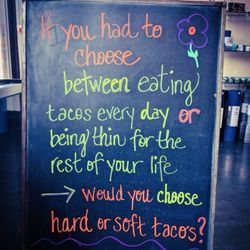 If you had to
choose
between eating
tacos every day or
being thin for the
rest of your life
→ would you choose
hard or soft tacos?